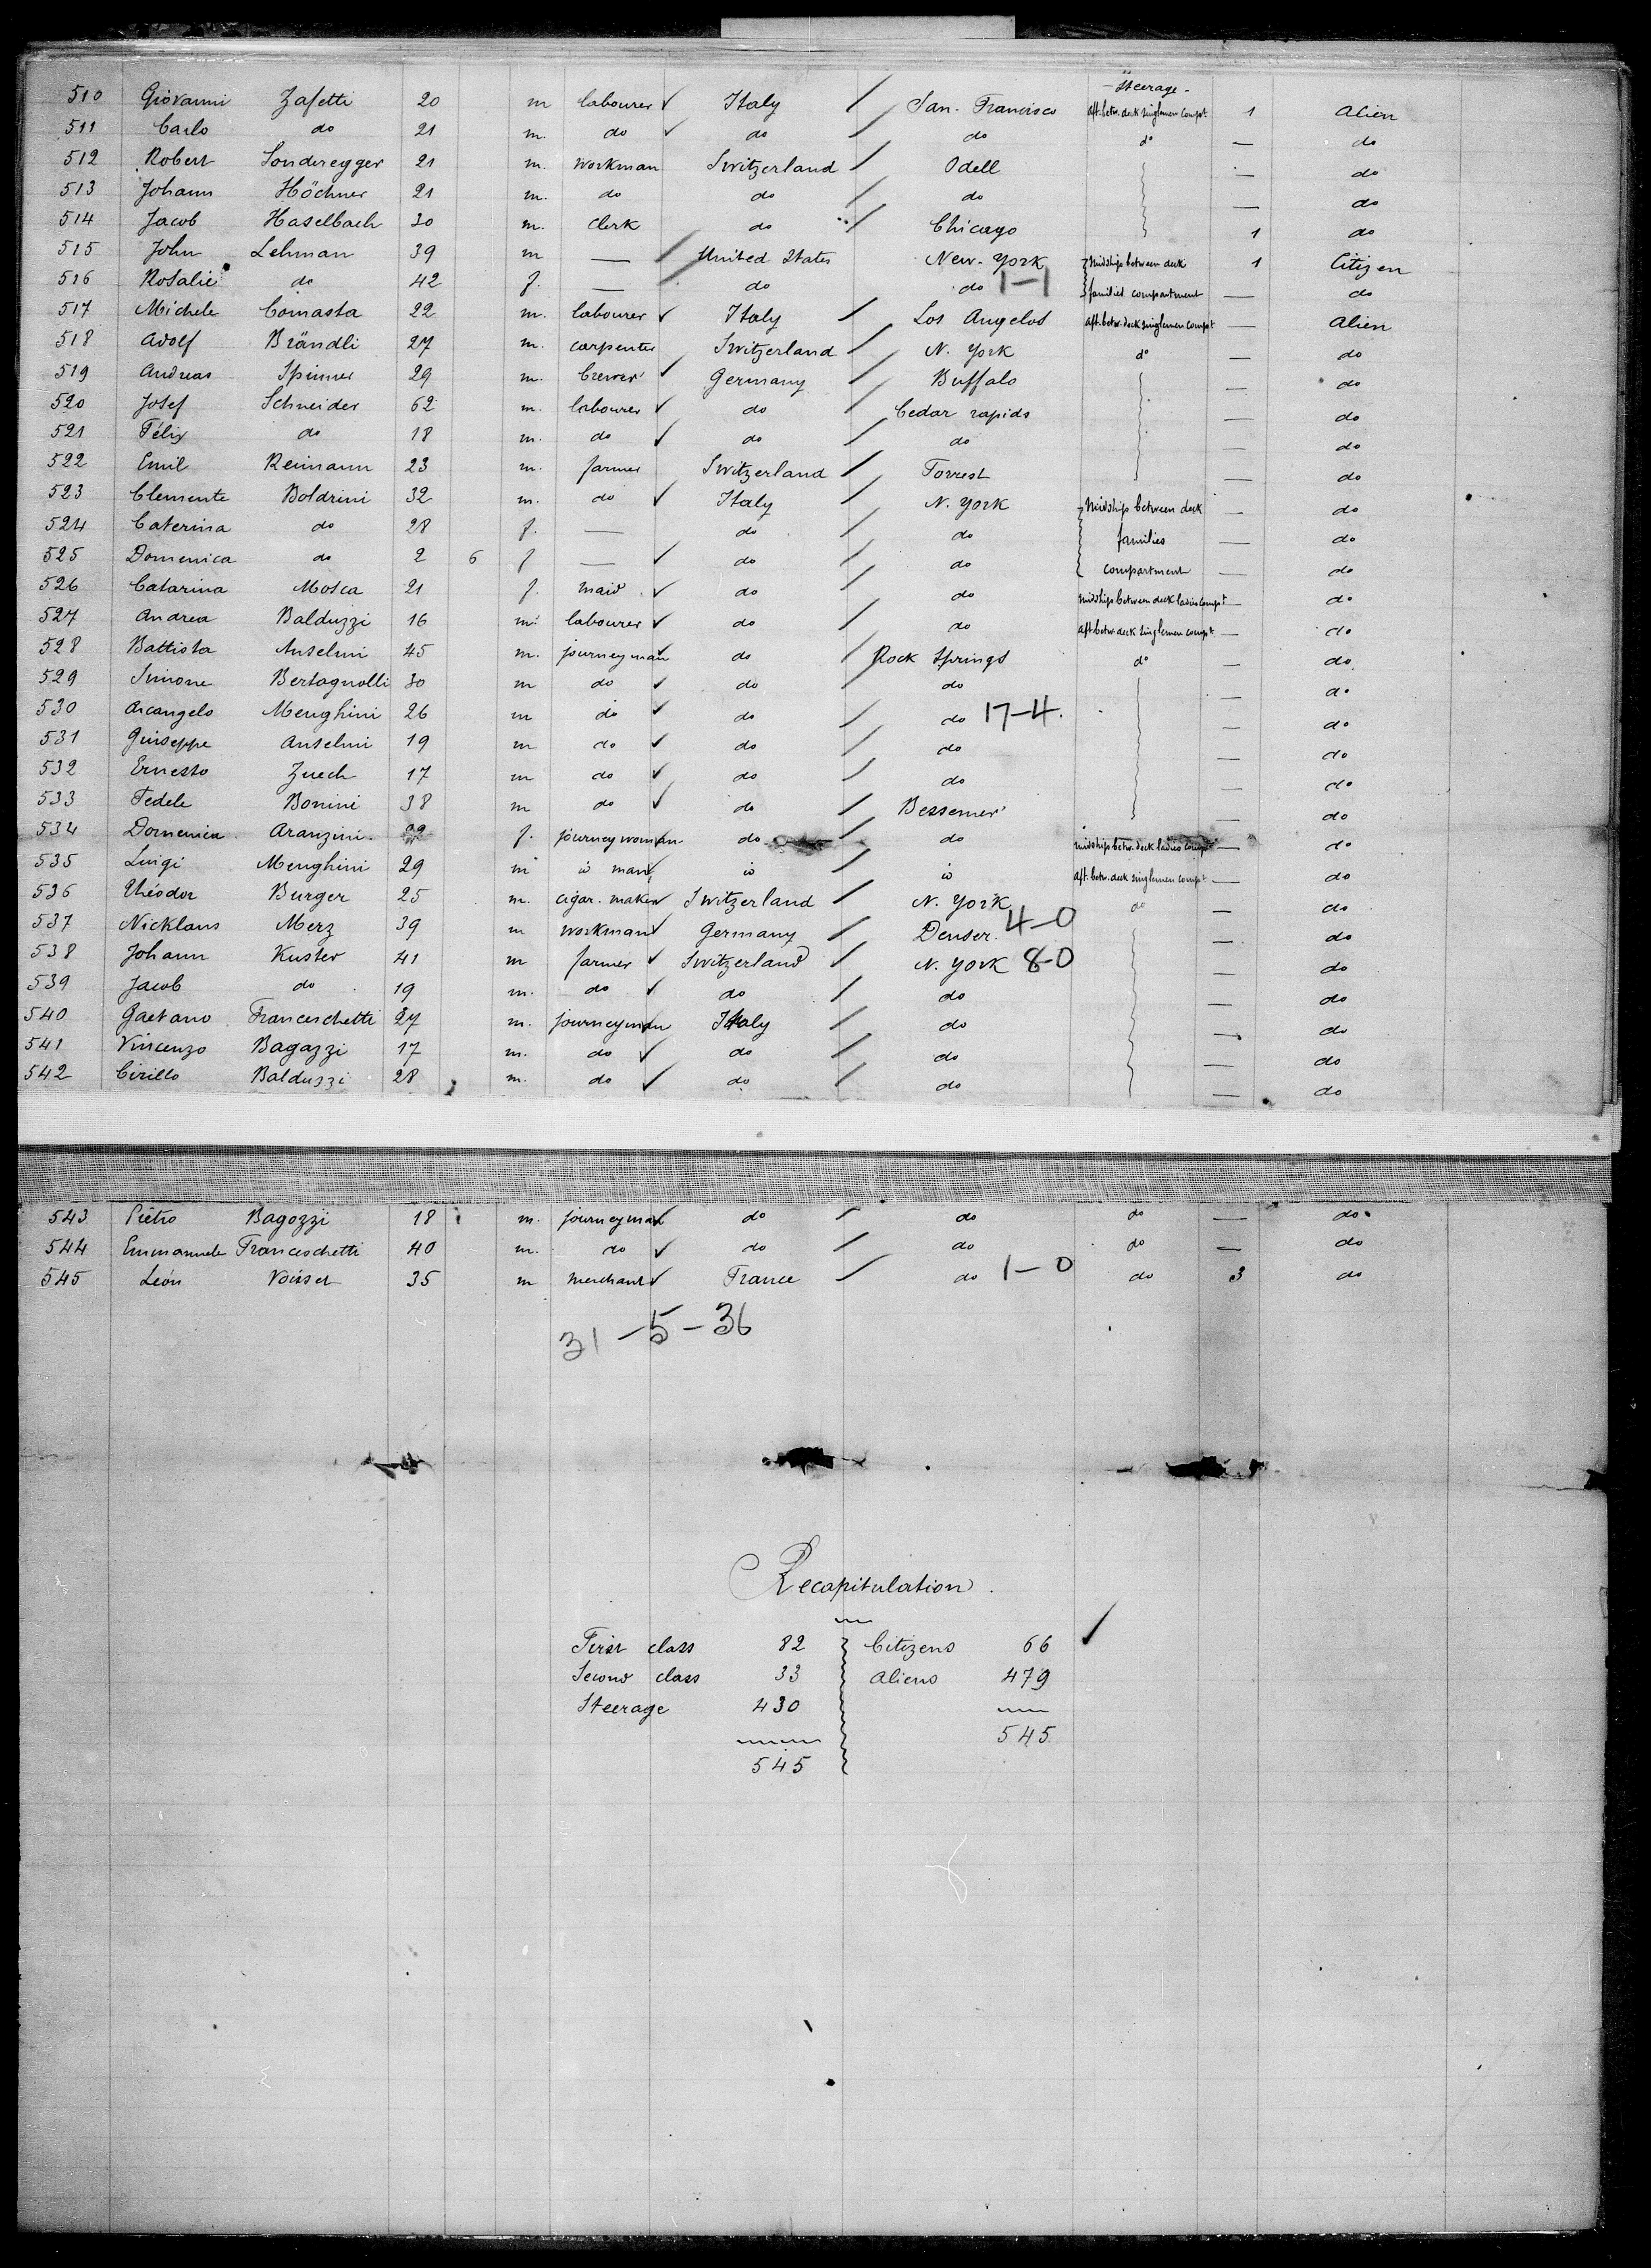 - Steerage -
510 Giovanni Zafetti 20 m labourer ✓ Italy / San-Francisco aft. betw. deck singlemen compt. 1 Alien
511 Carlo do 21 m. do ✓ do / do do — do
512 Robert Sonderegger 21 m. workman Switzerland / Odell — do
513 Johann Höchner 21 m. do do / do — do
514 Jacob Haselbach 30 m. Clerk do / Chicago 1 do
515 John Lehman 39 m — / United States New-York Midship between deck 1 Citizen
516 Rosalie do 42 f. — / do do 1-1 families compartment — do
517 Michele Comasta 22 m. labourer ✓ Italy / Los Angelos aft. betw. deck singlemen compt — Alien
518 Adolf Brändli 27 m. carpenter Switzerland / N. York do — do
519 Andreas Spinner 29 m. brewer ✓ Germany / Buffalo — do
520 Josef Schneider 62 m. labourer ✓ do / Cedar rapids — do
521 Félix do 18 m. do ✓ do / do — do
522 Emil Reimann 23 m. farmer Switzerland / Forrest — do
523 Clemente Boldrini 32 m. do ✓ Italy / N. York Midship between deck — do
524 Caterina do 28 f. — do / do families — do
525 Domenica do 2 6 f — ✓ do / do compartment — do
526 Catarina Mosca 21 f. maid ✓ do / do midships between deck ladies compt — do
527 Andrea Balduzzi 16 m. labourer ✓ do / do aft. betw deck singlemen compt. — do
528 Battista Anselmi 45 m. journeyman ✓ do / Rock Springs do — do
529 Simone Bertagnolli 30 m do ✓ do / do — do
530 Arcangelo Menghini 26 m do ✓ do / do 17-4. — do
531 Guiseppe Anselmi 19 m do ✓ do / do — do
532 Ernesto Zuech 17 m do ✓ do / do — do
533 Fedele Bonini 38 m do ✓ do / Bessemer — do
534 Domenica Aranzini f. journeywoman do / do midships betw. deck ladies compt — do
535 Luigi Menghini 29 m id man ✓ id / id aft. betw. deck singlemen compt — do
536 Théodor Burger 25 m. cigar. maker ✓ Switzerland / N. York do — do
537 Nicklaus Merz 39 m workman ✓ Germany / Denser. 4-0 — do
538 Johann Kuster 41 m farmer ✓ Switzerland / N. York 8-0 — do
539 Jacob do 19 m. do ✓ do / do — do
540 Gaetano Franceschetti 27 m. journeyman ✓ Italy / do — do
541 Vincenzo Bagazzi 17 m. do ✓ do / do — do
542 Cirillo Balduzzi 28 m. do ✓ do / do — do
543 Pietro Bagozzi 18 m. journeyman ✓ do / do do — do
544 Emmanuele Franceschetti 40 m. do ✓ do / do do — do
545 Léon Voisset 35 m merchant ✓ France / do 1-0 do 3 do
31-5-36
Recapitulation.
First class 82 Citizens 66 ✓
Second class 33 Aliens 479
Steerage 430
545
545